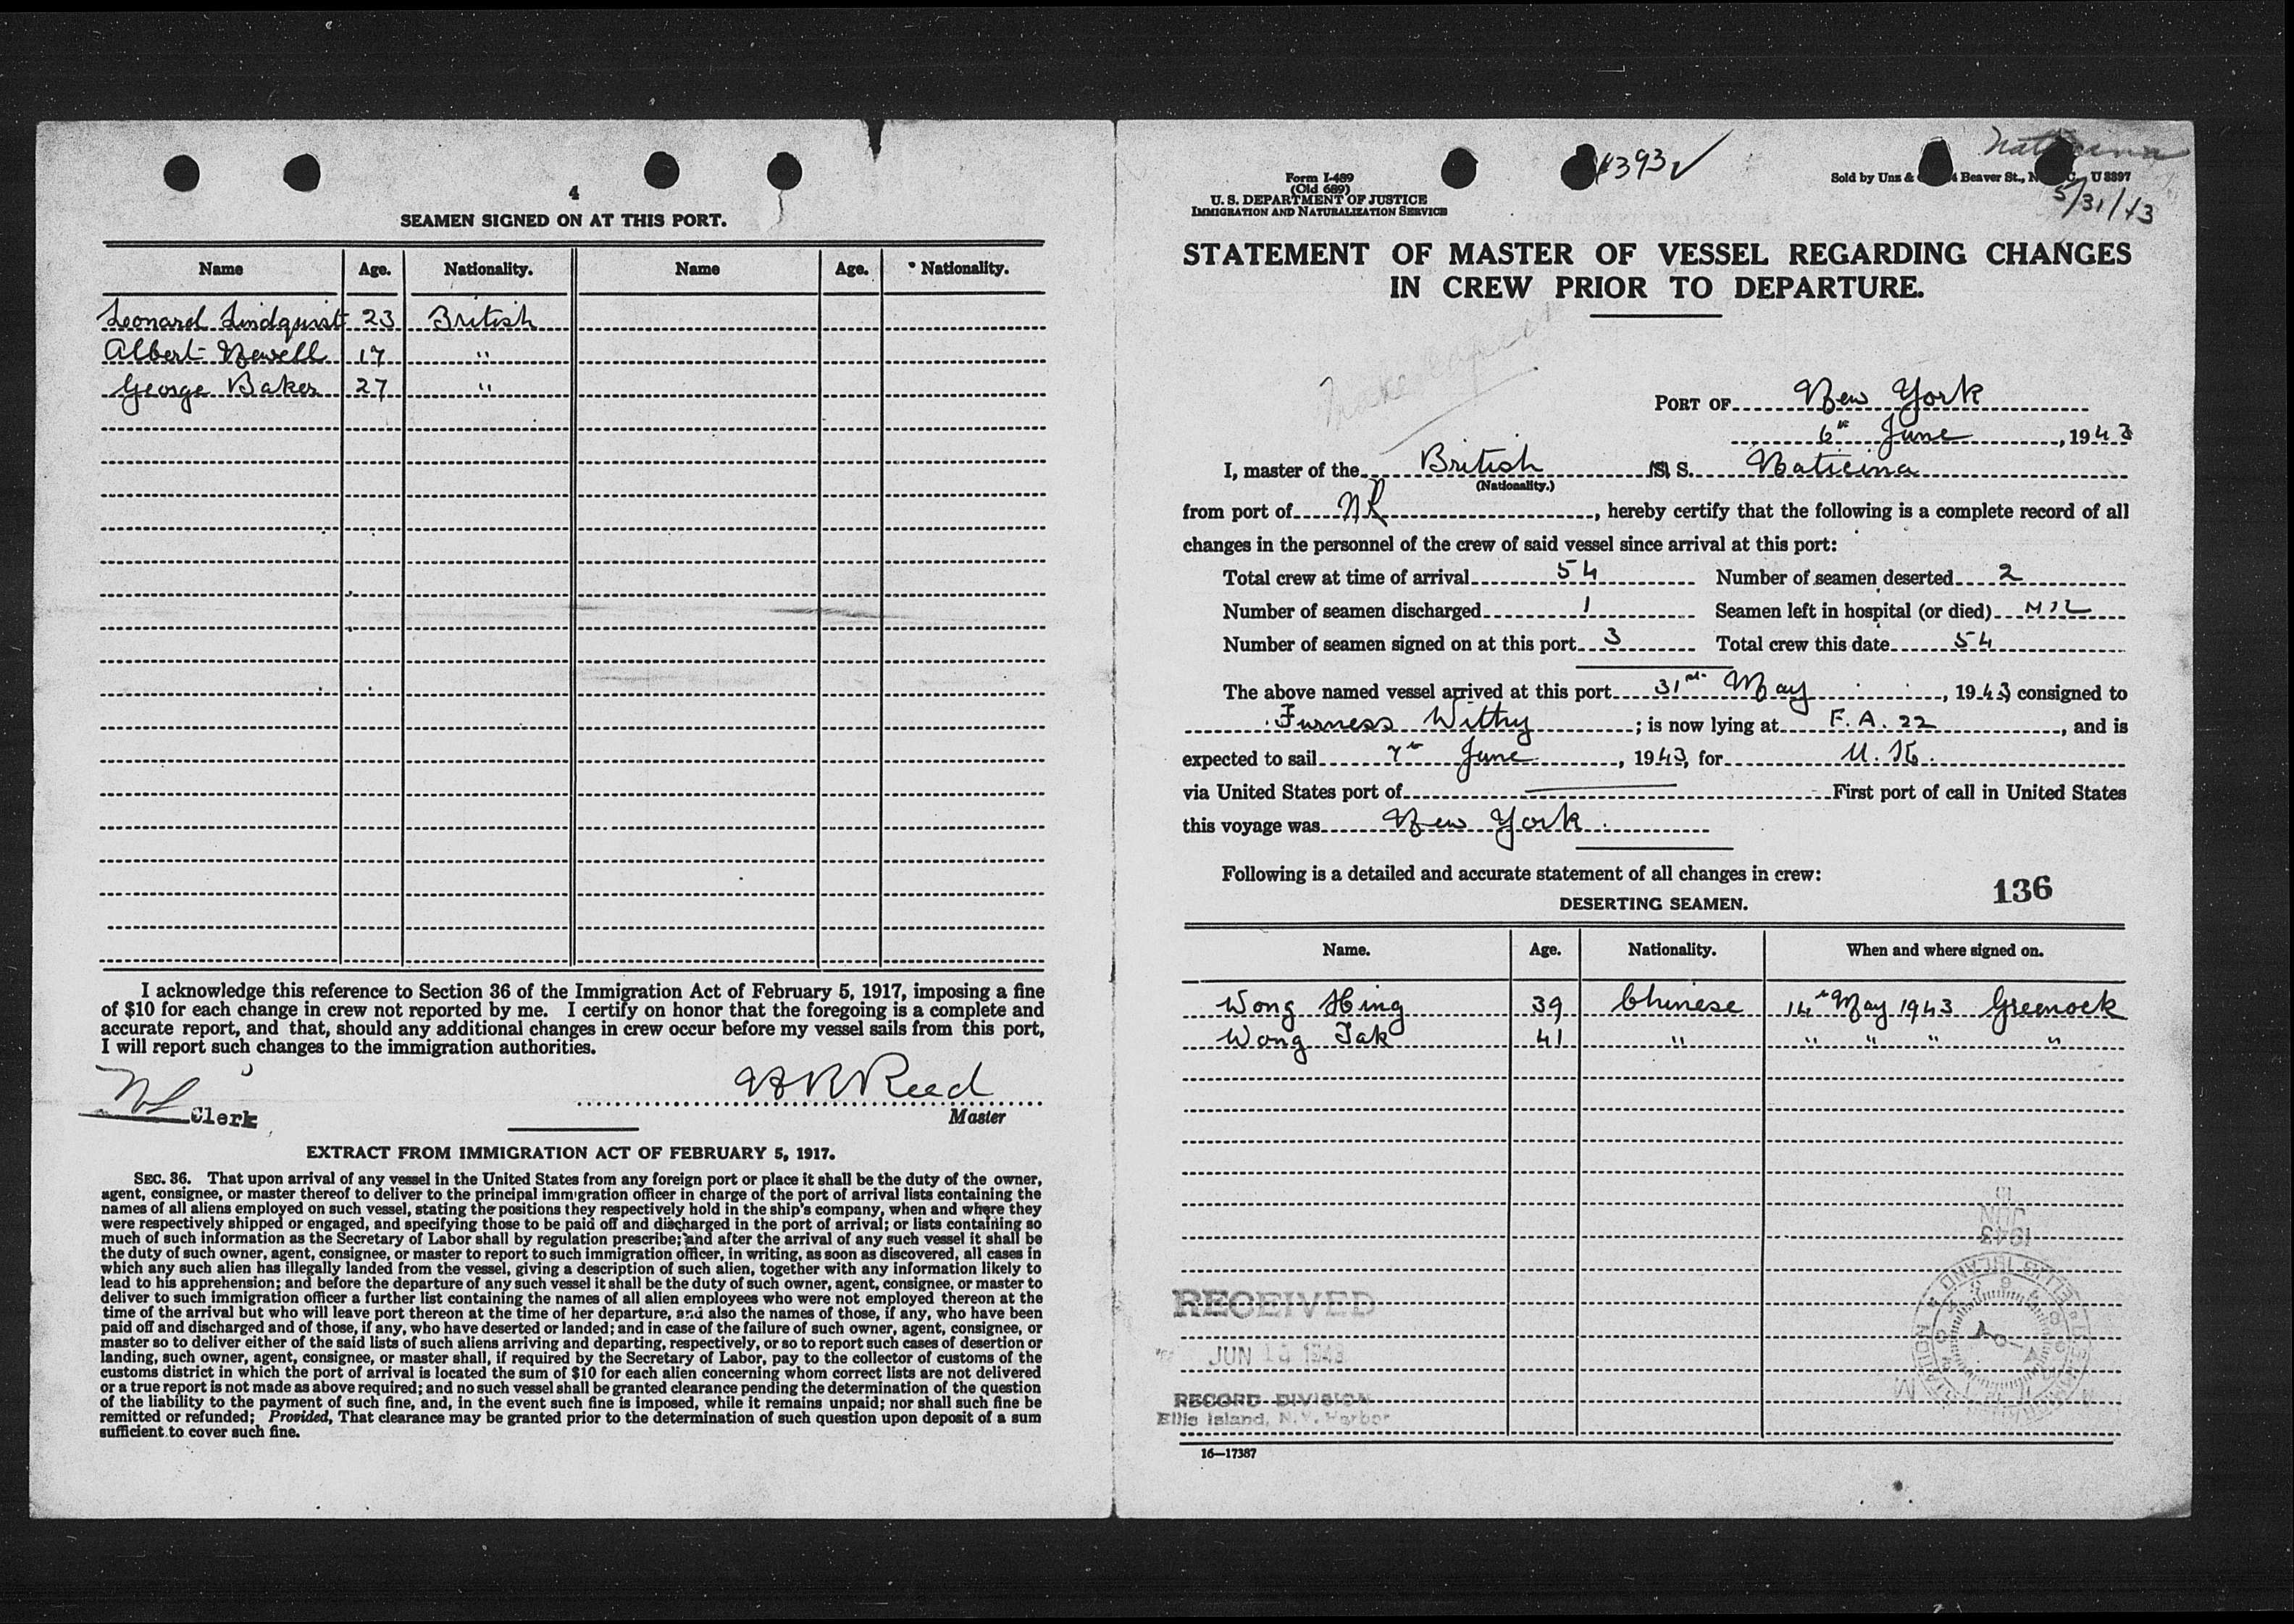 4
SEAMEN SIGNED ON AT THIS PORT.
Name Age. Nationality. Name Age. Nationality.
Leonard Lindquist 23 British
Albert Newell 17 "
George Baker 27 "
I acknowledge this reference to Section 36 of the Immigration Act of February 5, 1917, imposing a fine
of $10 for each change in crew not reported by me. I certify on honor that the foregoing is a complete and
accurate report, and that, should any additional changes in crew occur before my vessel sails from this port,
I will report such changes to the immigration authorities.
Reed
Clerk
Master
EXTRACT FROM IMMIGRATION ACT OF FEBRUARY 5, 1917.
SEC. 36. That upon arrival of any vessel in the United States from any foreign port or place it shall be the duty of the owner,
agent, consignee, or master thereof to deliver to the principal immigration officer in charge of the port of arrival lists containing the
names of all aliens employed on such vessel, stating the positions they respectively hold in the ship's company, when and where they
were respectively shipped or engaged, and specifying those to be paid off and discharged in the port of arrival; or lists containing so
much of such information as the Secretary of Labor shall by regulation prescribe; and after the arrival of any such vessel it shall be
the duty of such owner, agent, consignee, or master to report to such immigration officer, in writing, as soon as discovered, all cases in
which any such alien has illegally landed from the vessel, giving a description of such alien, together with any information likely to
lead to his apprehension; and before the departure of any such vessel it shall be the duty of such owner, agent, consignee, or master to
deliver to such immigration officer a further list containing the names of all alien employees who were not employed thereon at the
time of the arrival but who will leave port thereon at the time of her departure, and also the names of those, if any, who have been
paid off and discharged and of those, if any, who have deserted or landed; and in case of the failure of such owner, agent, consignee, or
master so to deliver either of the said lists of such aliens arriving and departing, respectively, or so to report such cases of desertion or
landing, such owner, agent, consignee, or master shall, if required by the Secretary of Labor, pay to the collector of customs of the
customs district in which the port of arrival is located the sum of $10 for each alien concerning whom correct lists are not delivered
or a true report is not made as above required; and no such vessel shall be granted clearance pending the determination of the question
of the liability to the payment of such fine, and, in the event such fine is imposed, while it remains unpaid; nor shall such fine be
remitted or refunded; Provided, That clearance may be granted prior to the determination of such question upon deposit of a sum
sufficient to cover such fine.
Form I-489
(Old 689)
U. S. DEPARTMENT OF JUSTICE
IMMIGRATION AND NATURALIZATION SERVICE
4393
Naticina
Sold by Unz & Beaver St., N. C. U 8897
5/31/43
STATEMENT OF MASTER OF VESSEL REGARDING CHANGES
IN CREW PRIOR TO DEPARTURE.
PORT OF New York
6th June, 1943
I, master of the British (S) S. Naticina
(Nationality.)
from port of NR, hereby certify that the following is a complete record of all
changes in the personnel of the crew of said vessel since arrival at this port:
Total crew at time of arrival 54 Number of seamen deserted 2
Number of seamen discharged 1 Seamen left in hospital (or died) NIL
Number of seamen signed on at this port 3 Total crew this date 54
The above named vessel arrived at this port 31st May, 1943 consigned to
Furness Withy; is now lying at F. A. 22, and is
expected to sail 7th June, 1943, for U. K.
via United States port of First port of call in United States
this voyage was New York
Following is a detailed and accurate statement of all changes in crew:
136
DESERTING SEAMEN.
Name. Age. Nationality. When and where signed on.
Wong Hing 39 Chinese 14th May 1943 Greenock
Wong Tak 41 " " " " "
1943
RECEIVED
JUN 1943
RECORD DIVISION
Ellis Island, N.Y. Harbor
16—17387